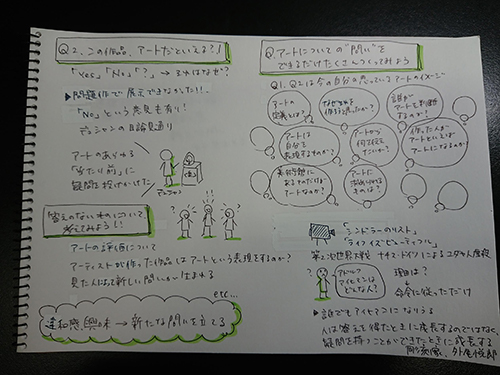 Q2. この作品、アートだといえる?!
「Yes」「No」「?」→ それはなぜ?
▶問題作で展示できなかった!!
「No」という意見も有り!
デュシャンの目論見通り
アートのあらゆる
「当たり前」に
疑問を投げかけた
デュシャン
答えのないものについて
考えてみよう!!
アートの評価について
アーティストが作った作品はアートという表現をするのか?
見た人によって新しい問いが生まれる
etc...
違和感、興味 → 新たな問いを立てる
Q.アートについての"問い"を
できるだけたくさんつくってみよう
Q1. Q2は今の自分の思っているアートのイメージ
アートの
定義とは?
なぜそれを
作ろうと思ったか?
誰が
アートを判断
するのか?
アートは
自分を
表現するものか?
アートから
何を伝え
たいか?
作った人が
アートといえば
アートになるのか?
美術館に
あるものだけが
アートなのか?
アートに
決まりは
あるのか?
「シンドラーのリスト」
「ライフイズビューティフル」
第2次世界大戦 ナチスドイツによるユダヤ人虐殺
アドルフ
アイヒマンは
どんな人?
理由は?
命令に従っただけ
▶誰でもアイヒマンになりうる
人は答えを得たときに成長するのではなく
疑問を持つことができたときに成長する